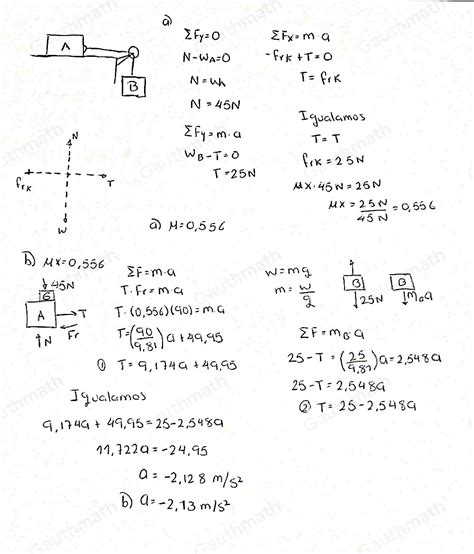 a)
A
B
ΣFy=0
N-WA=0
N=WA
N=45N
ΣFy=m·a
WB-T=0
T=25N
ΣFx=m·a
-frk+T=0
T=frk
Igualamos
T=T
frk=25N
μx·45N=25N
μx=25N/45N=0,556
N
frk
T
W
a) μ=0,556
b) μx=0,556
45N
G
A
T
Fr
N
ΣF=m·a
T·Fr=m·a
T·(0,556)(90)=m·a
T=(90/9,81)a+49,95
① T=9,174a+49,95
w=mg
m=w/g
B
25N
B
mBa
ΣF=mB·a
25-T=(25/9,81)a=2,548a
25-T=2,548a
② T=25-2,548a
Igualamos
9,174a+49,95=25-2,548a
11,722a=-24,95
a=-2,128 m/s²
b) a=-2,13 m/s²
Gauthmath